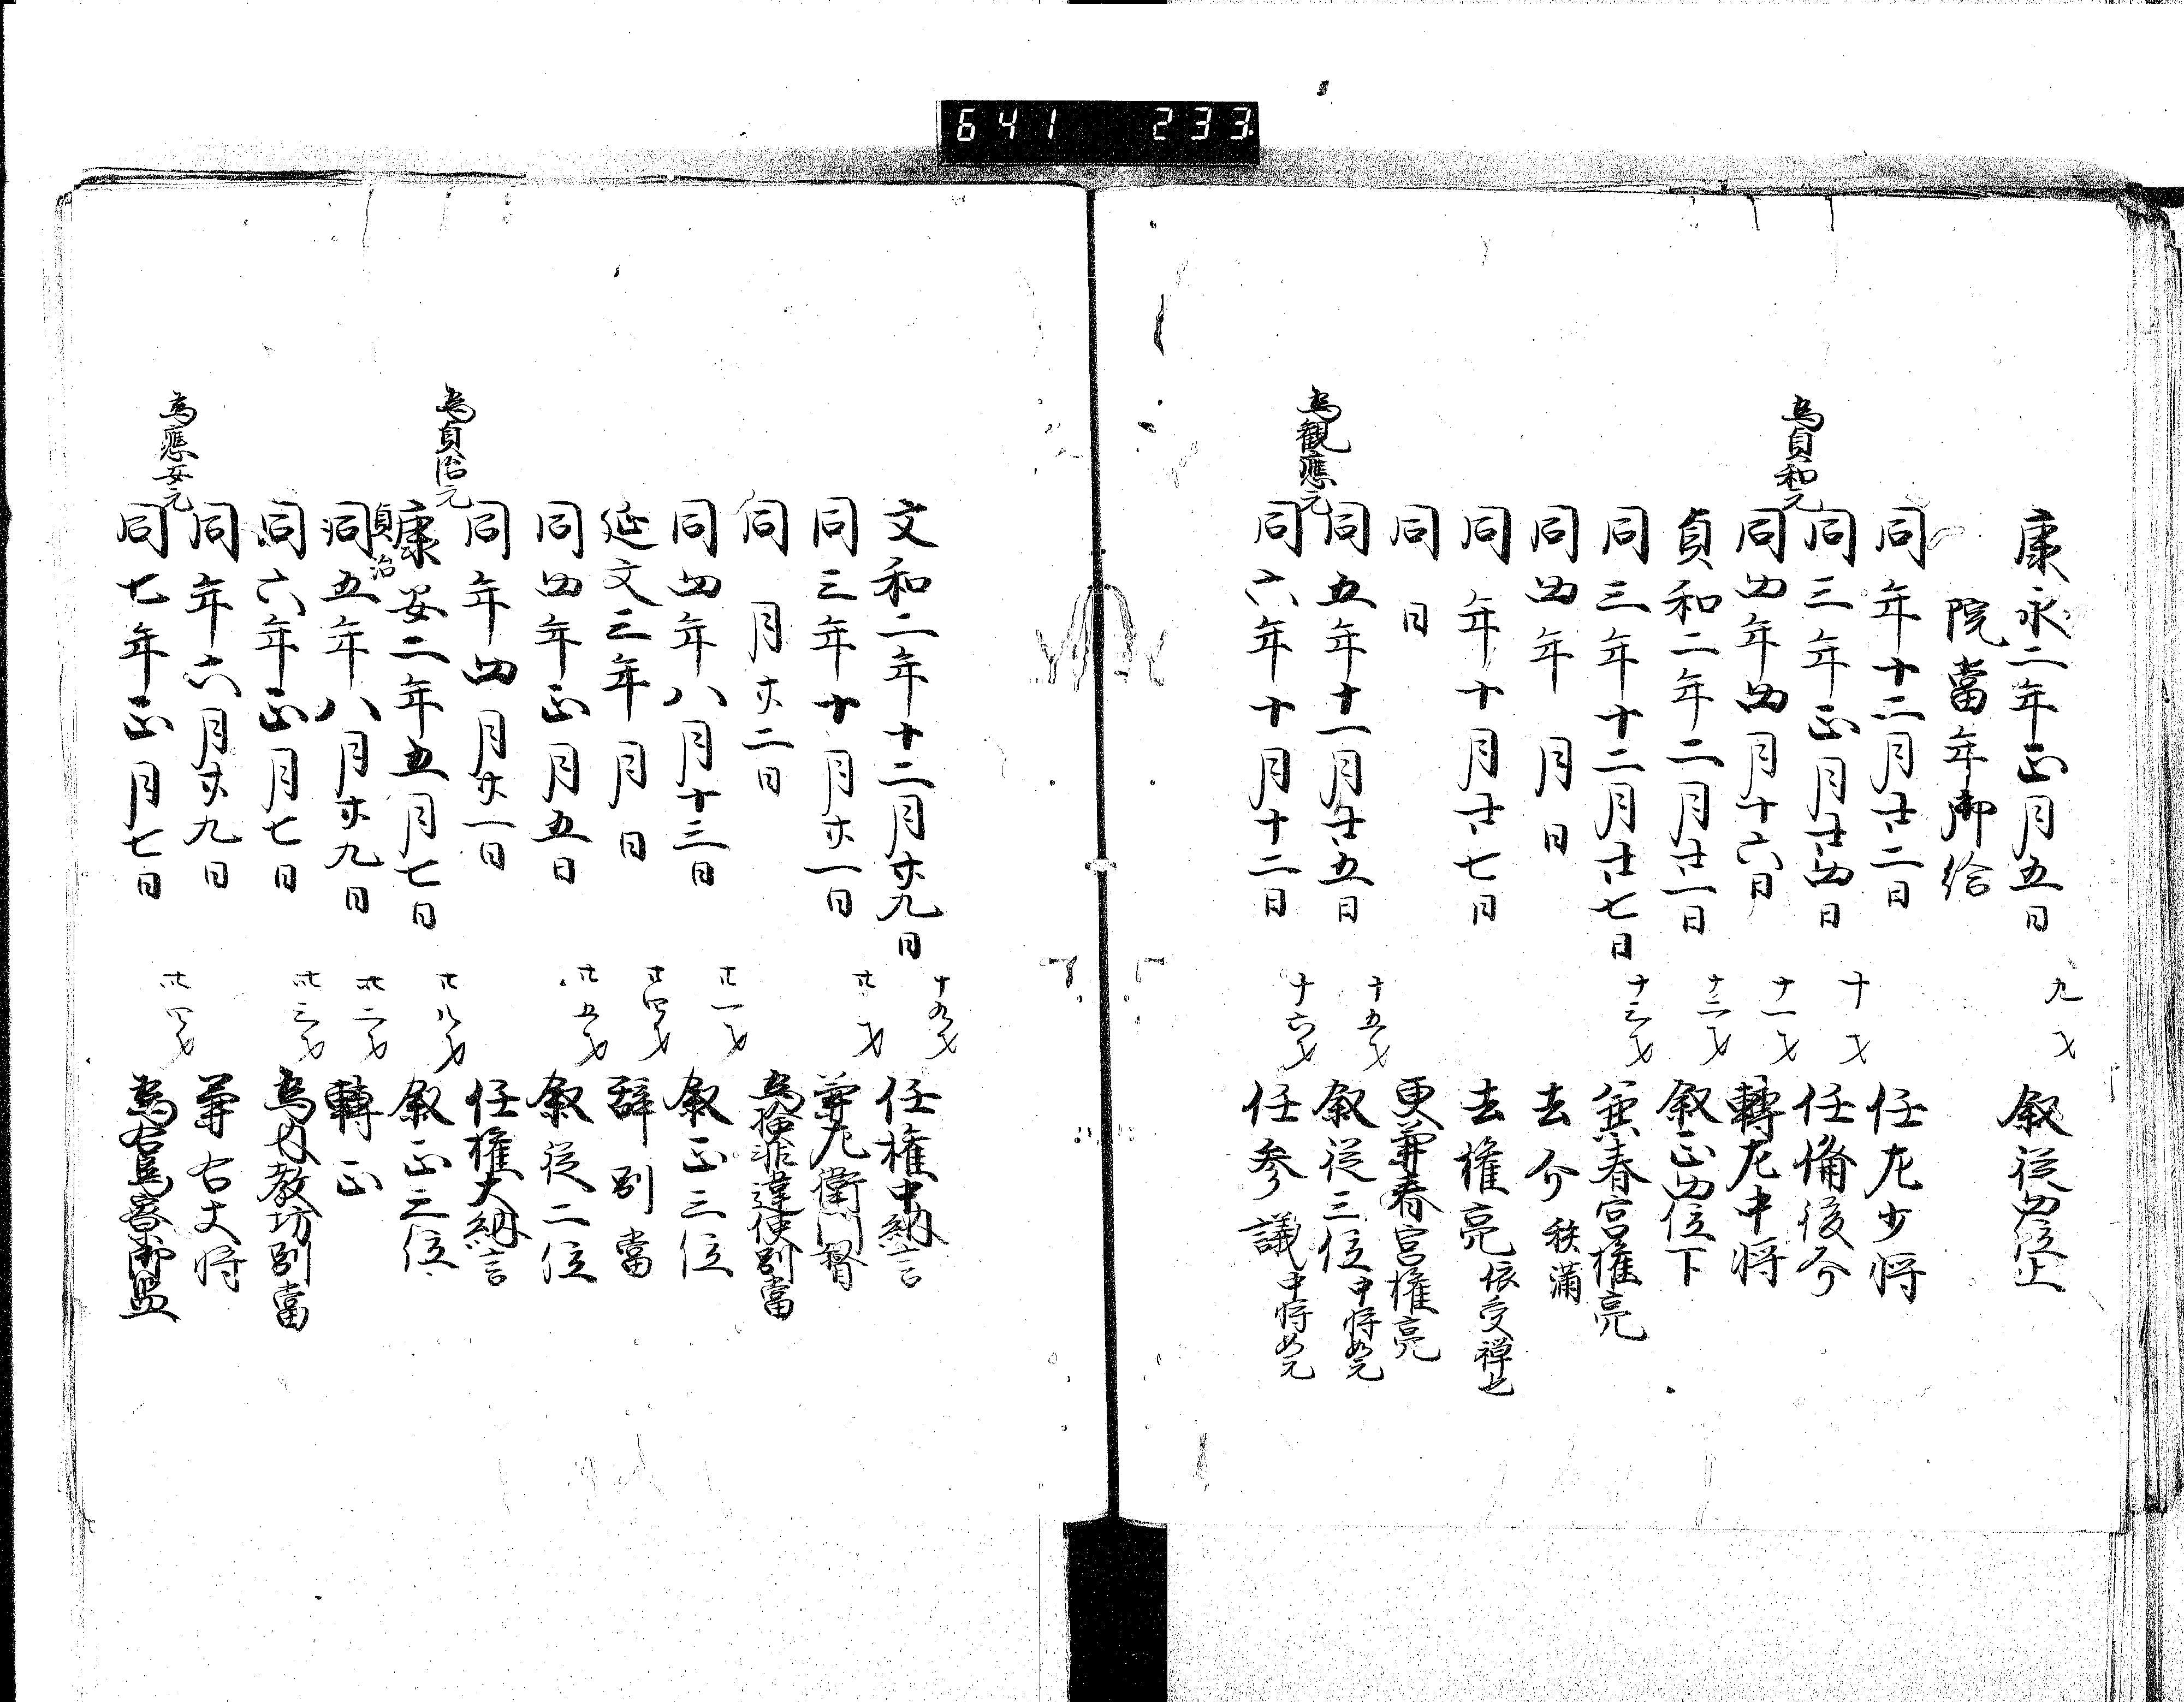 641 233
康永二年正月五日 九才 叙従四位上
院當年御給
同年十二月廿二日 任左少将
同三年正月廿四日 十才 任備後介
為貞和元
同四年四月十六日 十一才 轉左中将
貞和二年二月廿一日 十二才 叙正四位下
同三年十二月廿七日 十三才 兼春宮権亮
同四年 月 日 去介 秩満
同年十月廿七日 去権亮 依受禅也
同日 更兼春宮権亮
同五年十一月廿五日 十五才 叙従三位 中将如元
為観應元
同六年十月十二日 十六才 任参議 中将如元
文和二年十二月廿九日 十九才 任権中納言
同三年十月廿一日 廿才 兼左衛門督
同月廿二日 為検非違使別當
同四年八月十三日 廿一才 叙正三位
延文三年 月 日 廿四才 辞別當
同四年正月五日 廿五才 叙従二位
同年四月廿一日 任権大納言
為貞治元
康安二年五月七日 廿八才 叙正二位
貞治
同五年八月廿九日 卅二才 轉正
同六年正月七日 卅三才 為内教坊別當
同年六月廿九日 兼右大将
為應安元
同七年正月七日 卅四才 為右馬寮御監